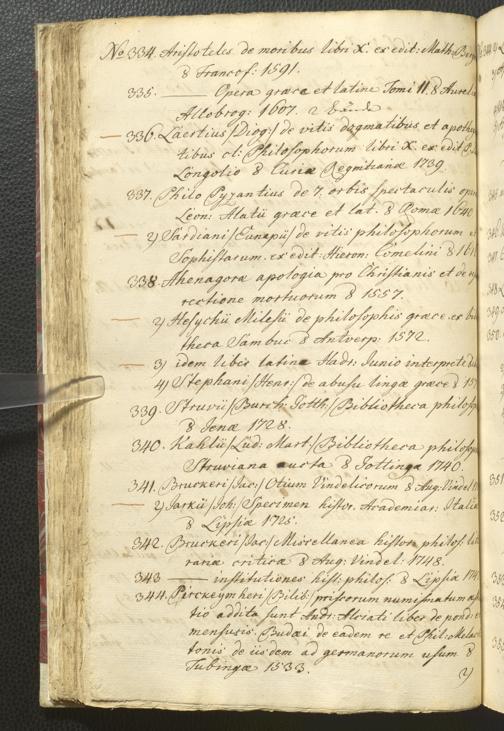 No 334. Aristoteles de moribus libri X. ex edit: Math: Berg
8 Francof: 1591.
335. ——— Opera græce et latine Tomi II. 8 Aurel
Allobrog: 1607. 2 Bände
— 336. Laertius /Diog:/ de vitis dogmatibus et apoth
tibus cl: Philosophorum libri X. ex edit P.
Longolio 8 Curiæ Regnitianæ 1739.
337. Philo Byzantius de 7. orbis spectaculis oper
Leon: Alatii græce et lat. 8 Romæ 1640
— 2) Sardiani /Eunapii/ de vitis philosophorum et
Sophistarum. ex edit: Hieron: Comelini 8
338. Athenagoræ apologia pro Christianis et de
rectione mortuorum 8 1557.
— 2) Hesychii Milesii de philosophis græce. ex bi
theca Sambuc 8 Antverp. 1572.
— 3) idem liber latine Hadr: Junio interprete
4) Stephani /Henr:/ de abusu lingæ græce 8 15
339. Struvii /Burch: Gotth:/ Bibliotheca philos
8 Jenæ 1728.
340. Kahlii /Lud: Mart:/ Bibliotheca philosop
Struviana aucta 8 Gottingæ 1740.
341. Bruckeri /Jac:/ Otium Vindelicorum 8 Aug: Vindel
— 2) Jarkii /Joh:/ Specimen histor. Academiar: Italiæ
8 Lipsiæ 1725.
342. Bruckeri /Jac:/ Miscellanea histor. philos. lit
rariæ criticæ 8 Aug: Vindel: 1748.
343 ——— institutiones hist: philos: 8 Lipsiæ 174
344. Pirckeymheri /Bilib:/ priscorum numismatum æs
tio addita sunt Andr: Alciati liber de pond: e
mensuris. Budæi de eadem re et Phil: Mela
tonis de iisdem ad germanorum usum 8
Tubingæ 1533.
2)